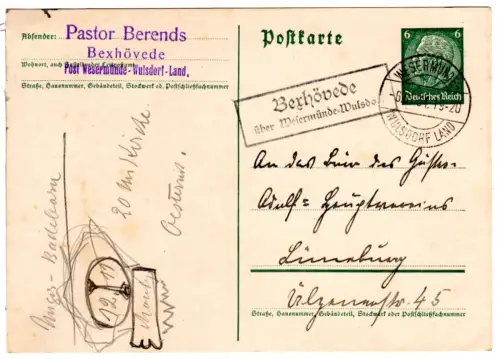 Absender: Pastor Berends
Bexhövede
Wohnort, auch Zustell- oder Leitpostamt
Post Wesermünde-Wulsdorf-Land.
Straße, Hausnummer, Gebäudeteil, Stockwerk od. Postschließfachnummer
Postkarte
6 6
Deutsches Reich
WESERMÜNDE
19-20
WULSDORF LAND
Bexhövede
über Wesermünde-Wulsdo
An das Büro des Gustav-
Adolf-Hauptvereins
Lüneburg
Ülzenerstr. 45
Straße, Hausnummer, Gebäudeteil, Stockwerk oder Postschließfachnummer
20 Kirche
Oesternis.
19.11